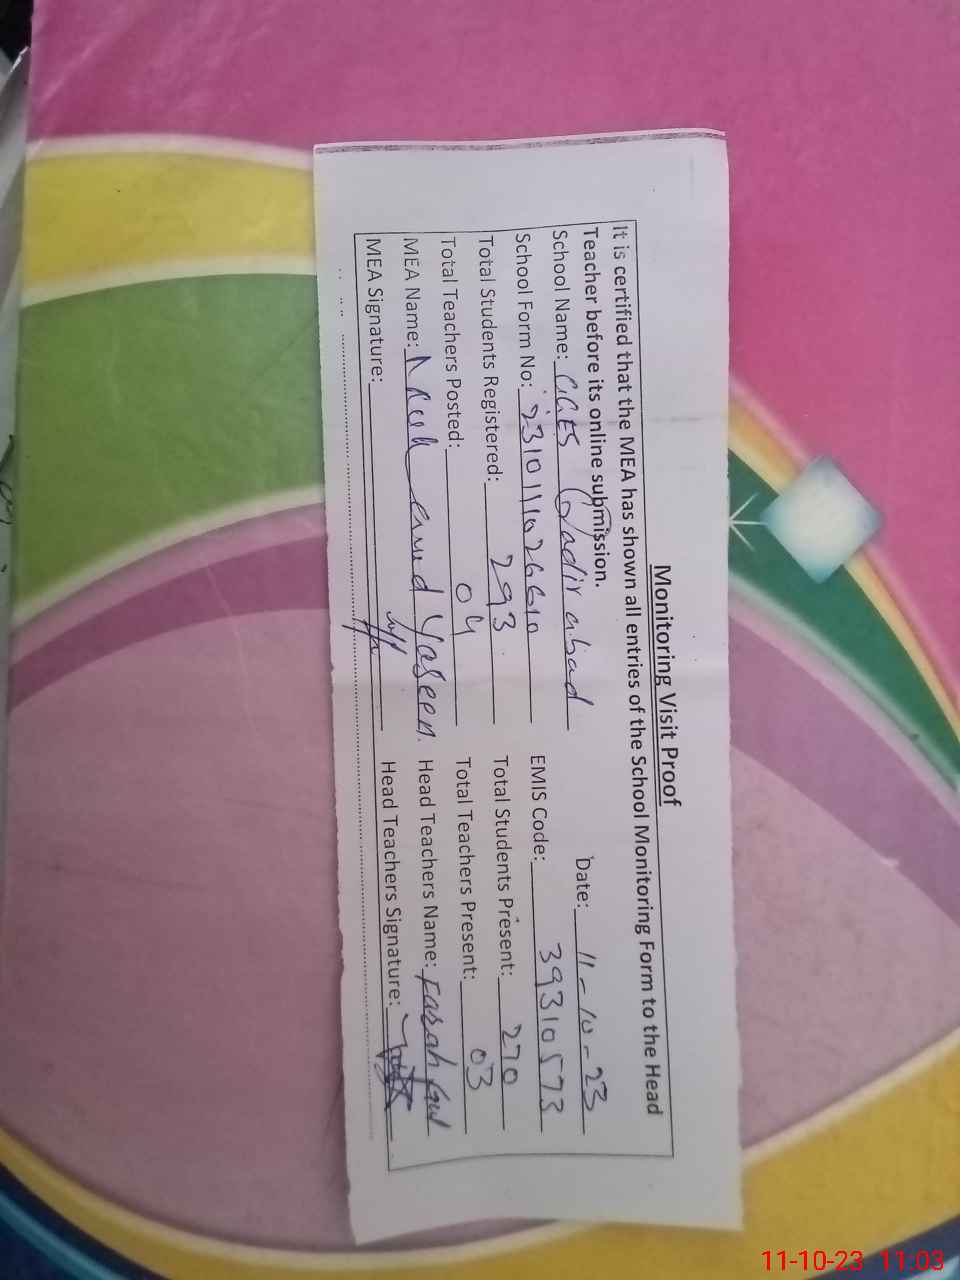 Monitoring Visit Proof
It is certified that the MEA has shown all entries of the School Monitoring Form to the Head
Teacher before its online submission.
Date: 11-10-23
School Name: GGES Qadir abad
School Form No: 231011026610 EMIS Code: 39310573
Total Students Registered: 293 Total Students Present: 270
Total Teachers Posted: 04 Total Teachers Present: 03
MEA Name: Yaseen. Head Teachers Name: Farah Gul
MEA Signature: Head Teachers Signature:
11-10-23 11:03